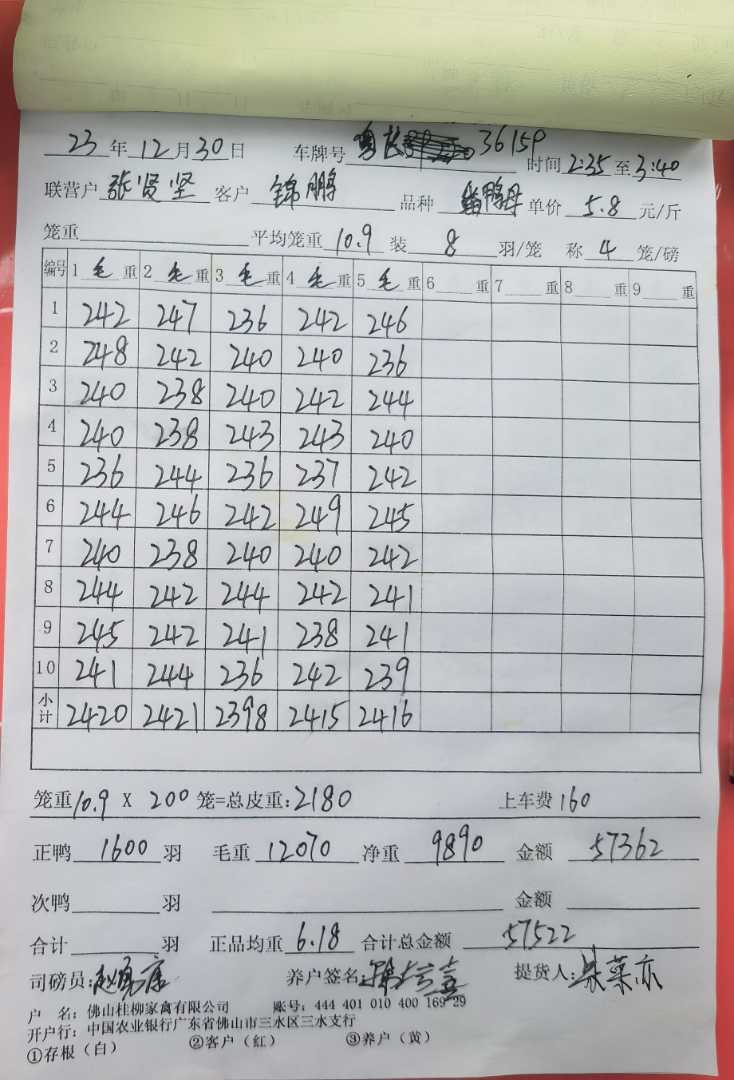 23年12月30日 车牌号 粤 36159 时间2:35至3:40
联营户 张贤坚 客户 锦鹏 品种 鸭母 单价 5.8 元/斤
笼重 平均笼重 10.9 装 8 羽/笼 称 4 笼/磅
编号 1 毛 重 2 毛 重 3 毛 重 4 毛 重 5 毛 重 6 重 7 重 8 重 9 重
1 242 247 236 242 246
2 248 242 240 240 236
3 240 238 240 242 244
4 240 238 243 243 240
5 236 244 236 237 242
6 244 246 242 249 245
7 240 238 240 240 242
8 244 242 244 242 241
9 245 242 241 238 241
10 241 244 236 242 239
小计 2420 2421 2398 2415 2416
笼重10.9 X 200 笼=总皮重:2180 上车费 160
正鸭 1600 羽 毛重 12070 净重 9890 金额 57362
次鸭 羽 金额
合计 羽 正品均重 6.18 合计总金额 57522
司磅员: 养户签名: 提货人:
户 名: 佛山桂柳家禽有限公司 账号: 444 401 010 400 169 29
开户行: 中国农业银行广东省佛山市三水区三水支行
①存根(白) ②客户(红) ③养户(黄)